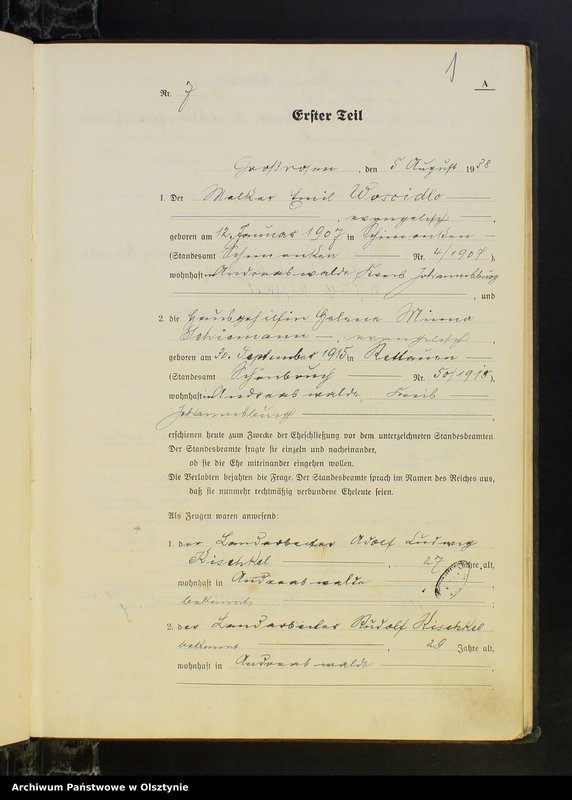 1
A
Nr. 7
Erster Teil
Großrosen, den 5 August 1938
1. Der Melker Emil Wosoidlo
, evangelisch,
geboren am 12. Januar 1907 in Schimonken
(Standesamt Schimonken Nr. 4/1907),
wohnhaft in Andreaswalde Kreis Johannisburg
, und
2. die Hausgehilfin Helene Minna
Schiemann, evangelisch,
geboren am 30. September 1915 in
(Standesamt Schönbruch Nr. 50/1915),
wohnhaft in Andreaswalde, Kreis
Johannisburg
erschienen heute zum Zwecke der Eheschließung vor dem unterzeichneten Standesbeamten.
Der Standesbeamte fragte sie einzeln und nacheinander,
ob sie die Ehe miteinander eingehen wollen.
Die Verlobten bejahten die Frage. Der Standesbeamte sprach im Namen des Reiches aus,
daß sie nunmehr rechtmäßig verbundene Eheleute seien.
Als Zeugen waren anwesend:
1. der Landarbeiter Adolf Ludwig
Kischkel, 27 Jahre alt,
wohnhaft in Andreaswalde
bekannt;
2. der Landarbeiter Rudolf Kischkel
bekannt, 29 Jahre alt,
wohnhaft in Andreaswalde
Archiwum Państwowe w Olsztynie